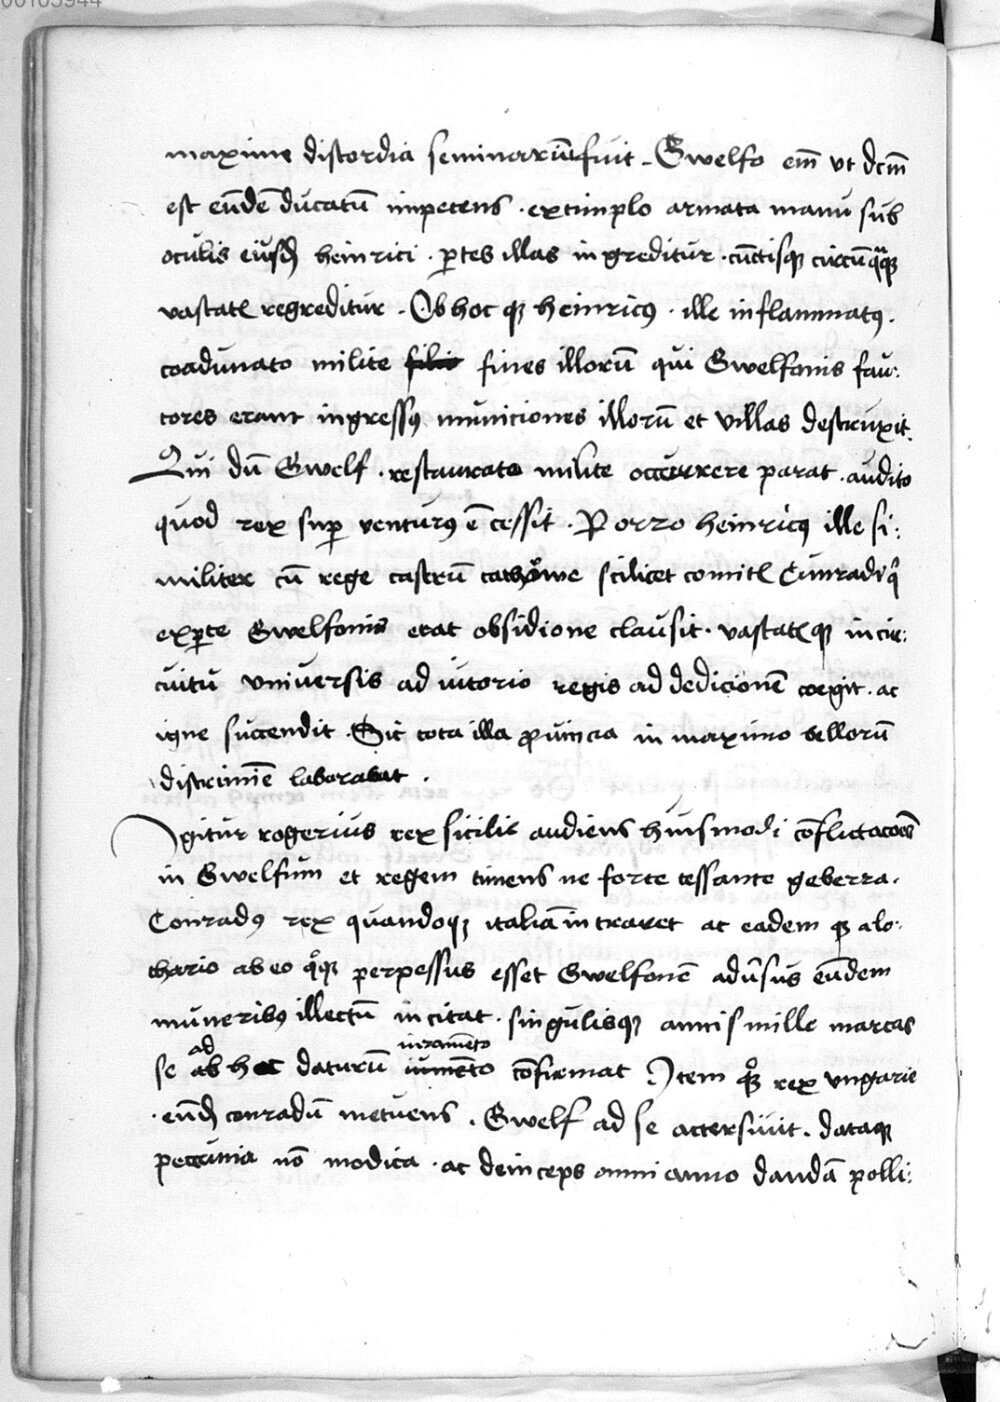 00103944
maxime discordia seminariūfuit . Gwelfo em̄ vt dcm̄
est eūdē ducatū impetens . extimplo armata manu sub
oculis eiusd heinrici . ptes illas ingreditur . cūctisq circūquaq
vastatꝭ regreditur . Ob hoc qꝫ heinricꝯ . ille inflammatꝯ .
coadunato milite fines illorū qui Gwelfonis fau:
tores erant ingressꝯ municiones illorū et villas destruxit .
Qui dū Gwelf . restaurato milite occurrere parat . audito
quod rex sup venturꝯ ē cessit . Porro heinricꝯ ille si:
militer cū rege castrū scilicet comitꝭ Cunradi q
exꝑte Gwelfonis erat obsidione clausit . vastatꝭ qꝫ in cir:
cuitu vniuersis ad iutorio regis ad dedicionē coegit . ac
igne succendit . Sic tota illa ꝓuincia in maximo bellorū
discrimīe laborabat .
Igitur rogerius rex sicilie audiens huismodi cōflictacōes
in Gwelfum et regem timens ne forte cessante gwerra .
Conradꝯ rex quandoqꝫ italiā intraret ac eadem qꝫ a lo:
thario ab eo qͦqꝫ perpessus esset Gwelfonē aduīsus eūdem
muneribꝯ illectū incitat . singulisqꝫ annis mille marcas
se ab ad hoc daturū iumēto iuramēto cōfirmat Item qͦꝫ rex vngarie
. eūd conradū metuens . Gwelf ad se accersiuit . dataqꝫ
peccunia nō modica . ac deinceps omni anno dandā polli: